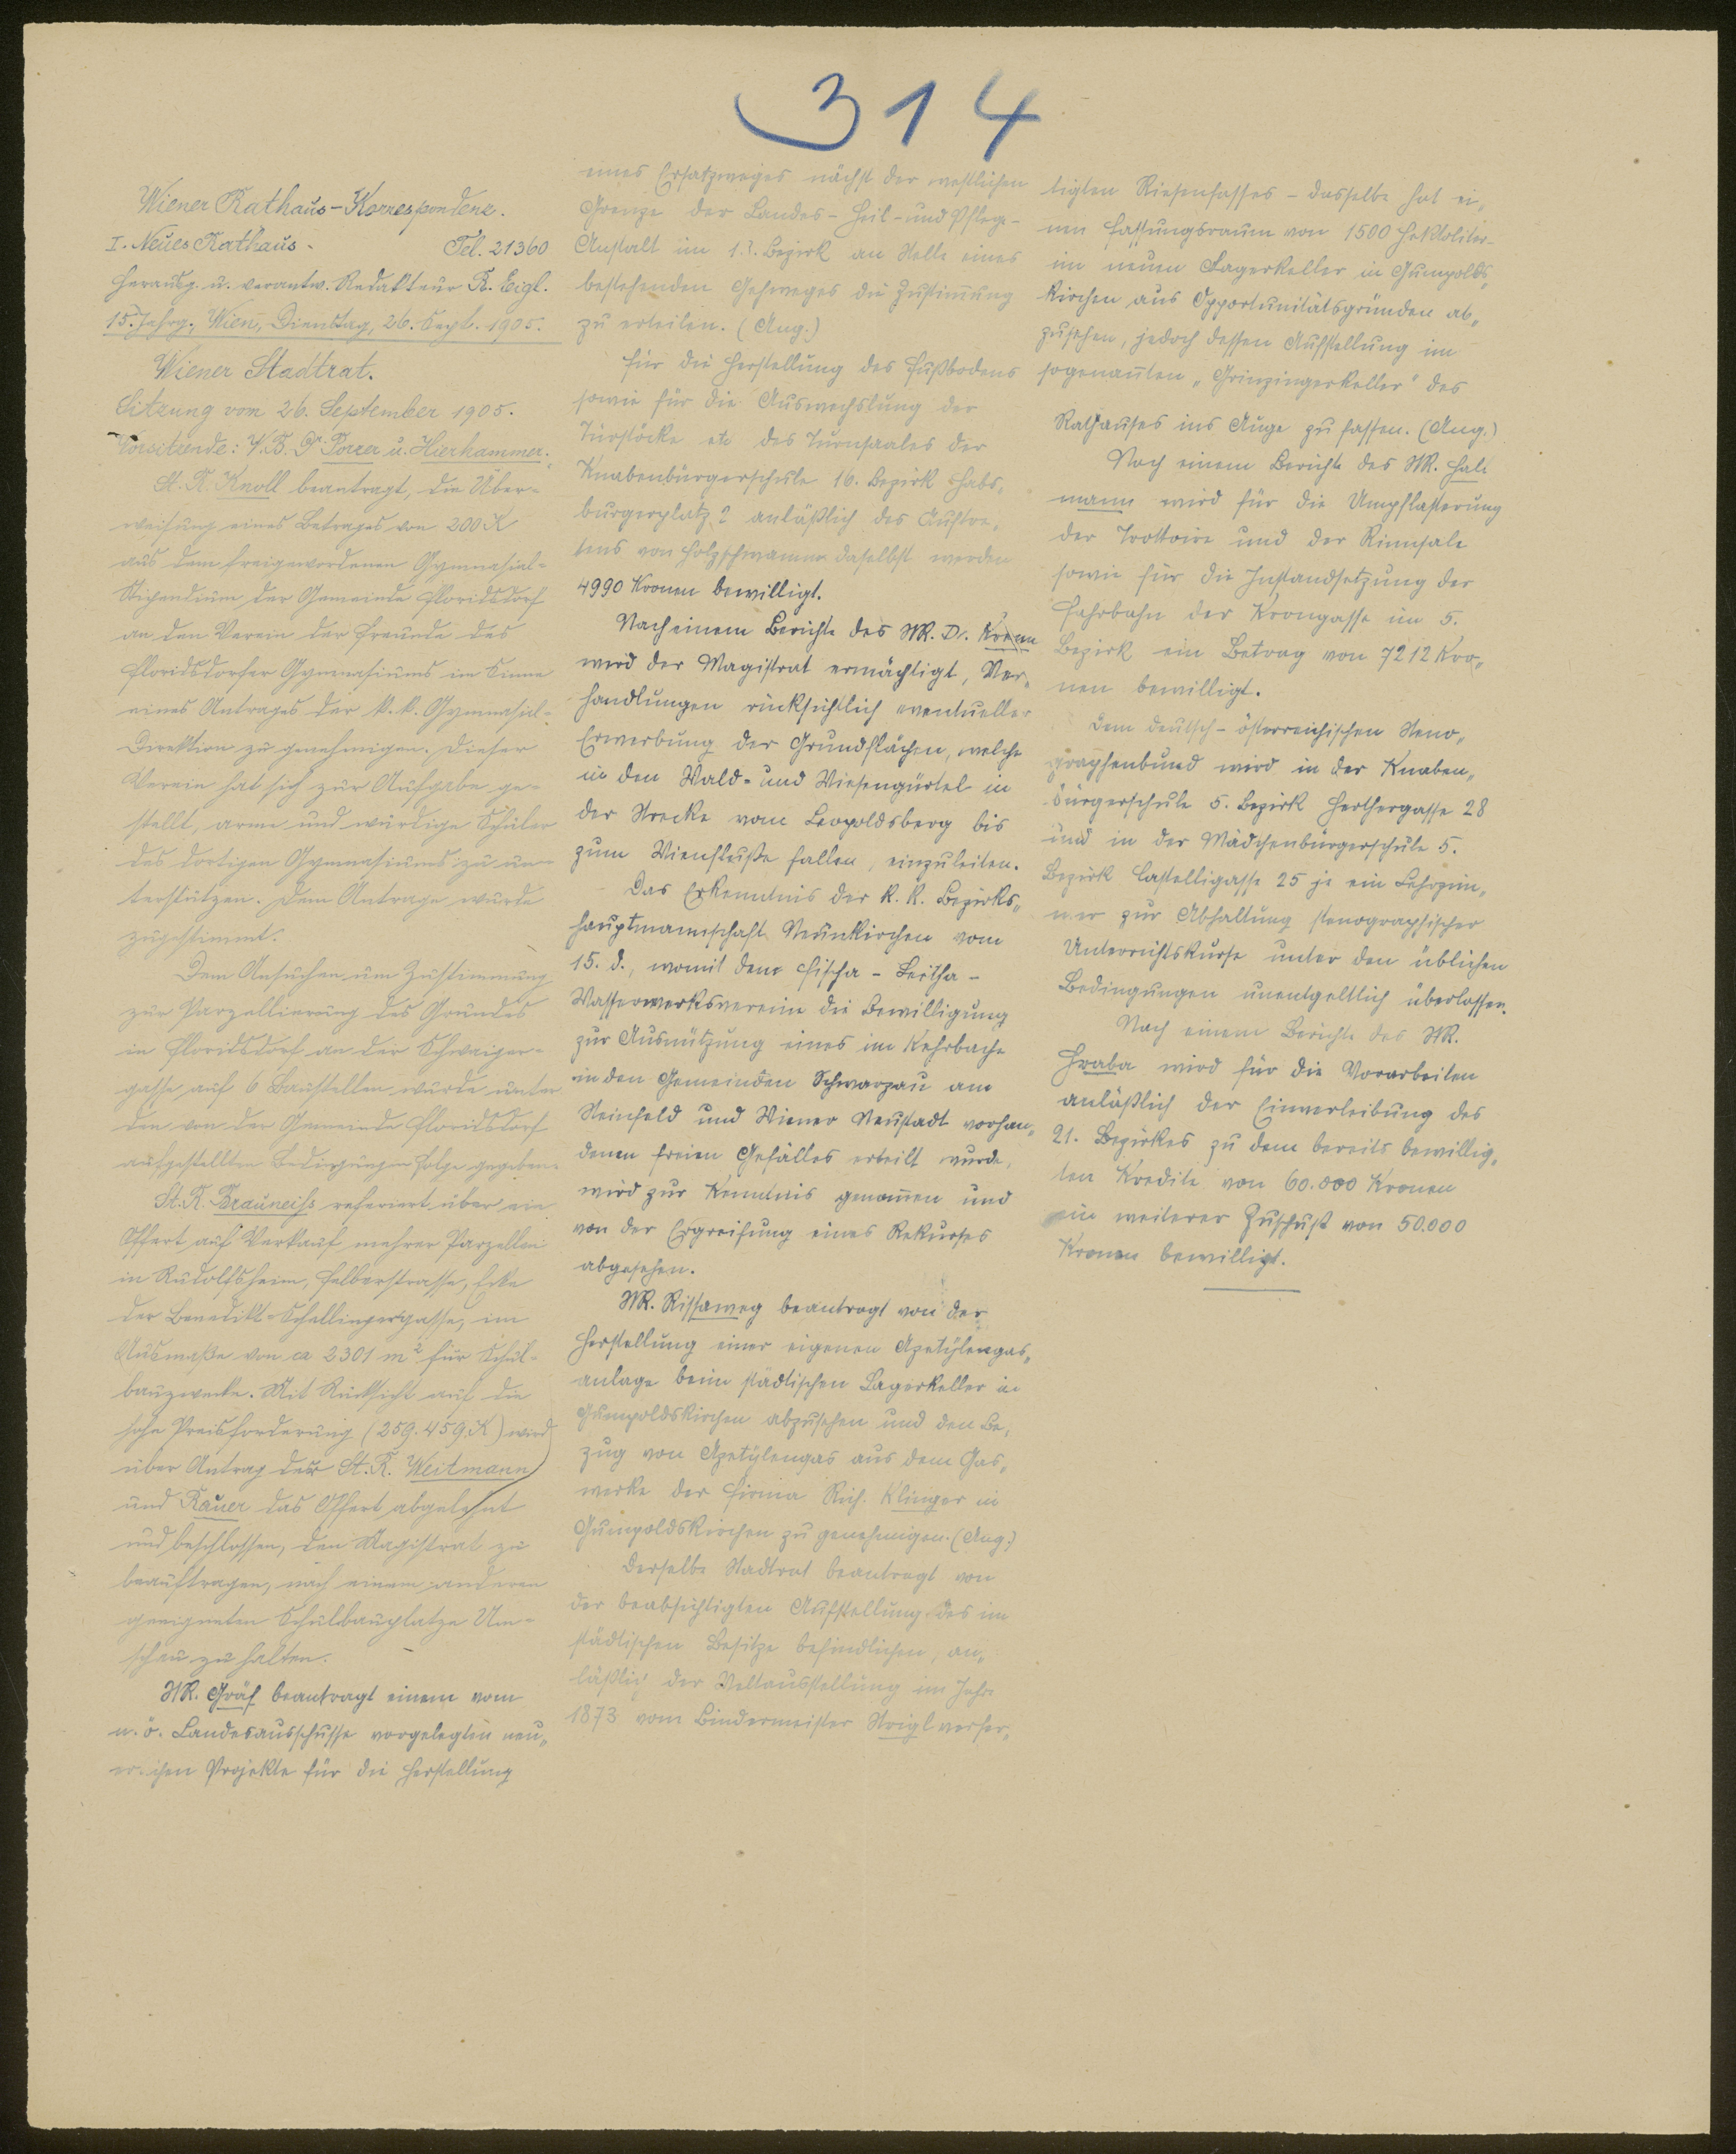 314
Wiener Rathaus-Korrespondenz.
I. Neues Rathaus. Tel. 21360
Herausg. u. verantw. Redakteur R. Eigl.
15. Jahrg., Wien, Dienstag, 26. Sept. 1905.
Wiener Stadtrat.
Sitzung vom 26. September 1905.
Vorsitzende: V.B. Dr. Porzer u. Hierhammer.
St. R. Knoll beantragt, die Über-
weisung eines Betrages von 200 K
aus dem freigewordenen Gymnasial-
Stipendium der Gemeinde Floridsdorf
an den Verein der Freunde des
Floridsdorfer Gymnasiums im Sinne
eines Antrages der k.k. Gymnasial-
Direktion zu genehmigen. Dieser
Verein hat sich zur Aufgabe ge-
stellt, arme und würdige Schüler
des dortigen Gymnasiums zu un-
terstützen. Dem Antrage wurde
zugestimmt.
Dem Ansuchen um Zustimmung
zur Parzellierung des Grundes
in Floridsdorf an der Schwaiger-
gasse auf 6 Baustellen wurde unter
den von der Gemeinde Floridsdorf
aufgestellten Bedingungen Folge gegeben.
St. R. Brauneiss referiert über ein
Offert auf Verkauf mehrer Parzellen
in Rudolfsheim, Felberstrasse, Ecke
der Benedikt-Schellingergasse, im
Ausmaße von ca 2301 m² für Schul-
bauzwecke. Mit Rücksicht auf die
hohe Preisforderung (259.459 K) wird
über Antrag der St. R. Weitmann
und Rauer das Offert abgelehnt
und beschlossen, den Magistrat zu
beauftragen, nach einem anderen
geeigneten Schulbauplatze Um-
schau zu halten.
StR. Gräf beantragt einem vom
n.ö. Landesausschusse vorgelegten neu„
erlichen Projekte für die Herstellung
eines Ersatzweges nächst der westlichen
Grenze der Landes-Heil- und Pflege-
Anstalt im 13. Bezirk an Stelle eines
bestehenden Gehweges die Zustimmung
zu erteilen. (Ang.)
Für die Herstellung des Fußbodens
sowie für die Auswechslung der
Türstöcke etc des Turnsaales der
Knabenbürgerschule 16. Bezirk Habs„
burgerplatz 2 anläßlich des Auftre„
tens von Holzschwamm daselbst werden
4990 Kronen bewilligt.
Nach einem Berichte des StR. Dr. Krenn
wird der Magistrat ermächtigt, Ver„
handlungen rücksichtlich eventueller
Erwerbung der Grundflächen, welche
in den Wald- und Wiesengürtel in
der Strecke vom Leopoldsberg bis
zum Wienfluße fallen, einzuleiten.
Das Erkenntnis der k.k. Bezirks„
hauptmannschaft Neunkirchen vom
15. d., womit dem Fischa-Leitha-
Wasserwerksvereine die Bewilligung
zur Ausnützung eines im Kehrbache
in den Gemeinden Schwarzau am
Steinfeld und Wiener Neustadt vorhan„
denen freien Gefälles erteilt wurde,
wird zur Kenntnis genommen und
von der Ergreifung eines Rekurses
abgesehen.
StR. Rissaweg beantragt von der
Herstellung einer eigenen Azetylengas„
anlage beim städtischen Lagerkeller in
Gumpoldskirchen abzusehen und den Be„
zug von Azetylengas aus dem Gas„
werke der Firma Rich. Klinger in
Gumpoldskirchen zu genehmigen. (Ang.)
Derselbe Stadtrat beantragt von
der beabsichtigten Aufstellung des im
städtischen Besitze befindlichen, an„
läßlich der Weltausstellung im Jahre
1873 vom Bindermeister Striegl verfer„
tigten Riesenfasses - dasselbe hat ei„
nen Fassungsraum von 1500 Hektoliter -
im neuen Lagerkeller in Gumpolds„
kirchen aus Opportunitätsgründen ab„
zusehen, jedoch dessen Aufstellung im
sogenannten „Grinzingerkeller" des
Rathauses ins Auge zu fassen. (Ang.)
Nach einem Berichte des StR. Hall
mann wird für die Umpflasterung
der Trottoire und der Rinnsale
sowie für die Instandsetzung der
Fahrbahn der Krongasse im 5.
Bezirk ein Betrag von 7212 Kro„
nen bewilligt.
Dem deutsch-österreichischen Steno„
graphenbund wird in der Knaben„
bürgerschule 5. Bezirk Herthergasse 28
und in der Mädchenbürgerschule 5.
Bezirk Castelligasse 25 je ein Lehrzim„
mer zur Abhaltung stenographischer
Unterrichtskurse unter den üblichen
Bedingungen unentgeltlich überlassen.
Nach einem Berichte des StR.
Hraba wird für die Vorarbeiten
anläßlich der Einverleibung des
21. Bezirkes zu dem bereits bewillig„
ten Kredite von 60.000 Kronen
ein weiterer Zuschuß von 50.000
Kronen bewilligt.